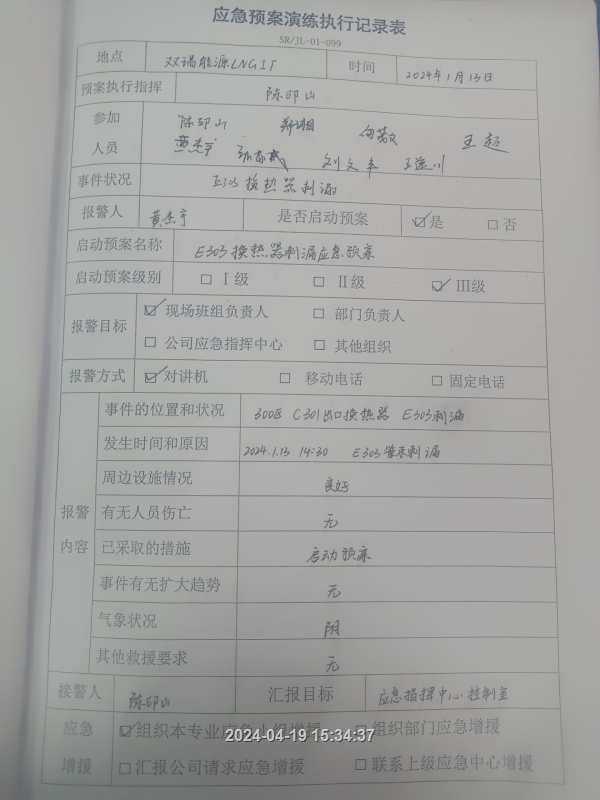 应急预案演练执行记录表
SR/JL-01-099
地点 双瑞能源LNG工厂 时间 2024年1月13日
预案执行指挥 陈印山
参加 陈印山 王超
人员 黄杰宇 刘文丰
事件状况 E303换热器刺漏
报警人 黄杰宇 是否启动预案 ☑是 □否
启动预案名称 E303换热器刺漏应急预案
启动预案级别 □Ⅰ级 □Ⅱ级 ☑Ⅲ级
报警目标 ☑现场班组负责人 □部门负责人
□公司应急指挥中心 □其他组织
报警方式 ☑对讲机 □移动电话 □固定电话
报警
内容
事件的位置和状况 300区 C301出口换热器 E303刺漏
发生时间和原因 2024.1.13 14:30 E303管束刺漏
周边设施情况 良好
有无人员伤亡 无
已采取的措施 启动预案
事件有无扩大趋势 无
气象状况 阴
其他救援要求 无
接警人 陈印山 汇报目标 应急指挥中心控制室
应急 ☑组织本专业应急小组增援 □组织部门应急增援
2024-04-19 15:34:37
增援 □汇报公司请求应急增援 □联系上级应急中心增援